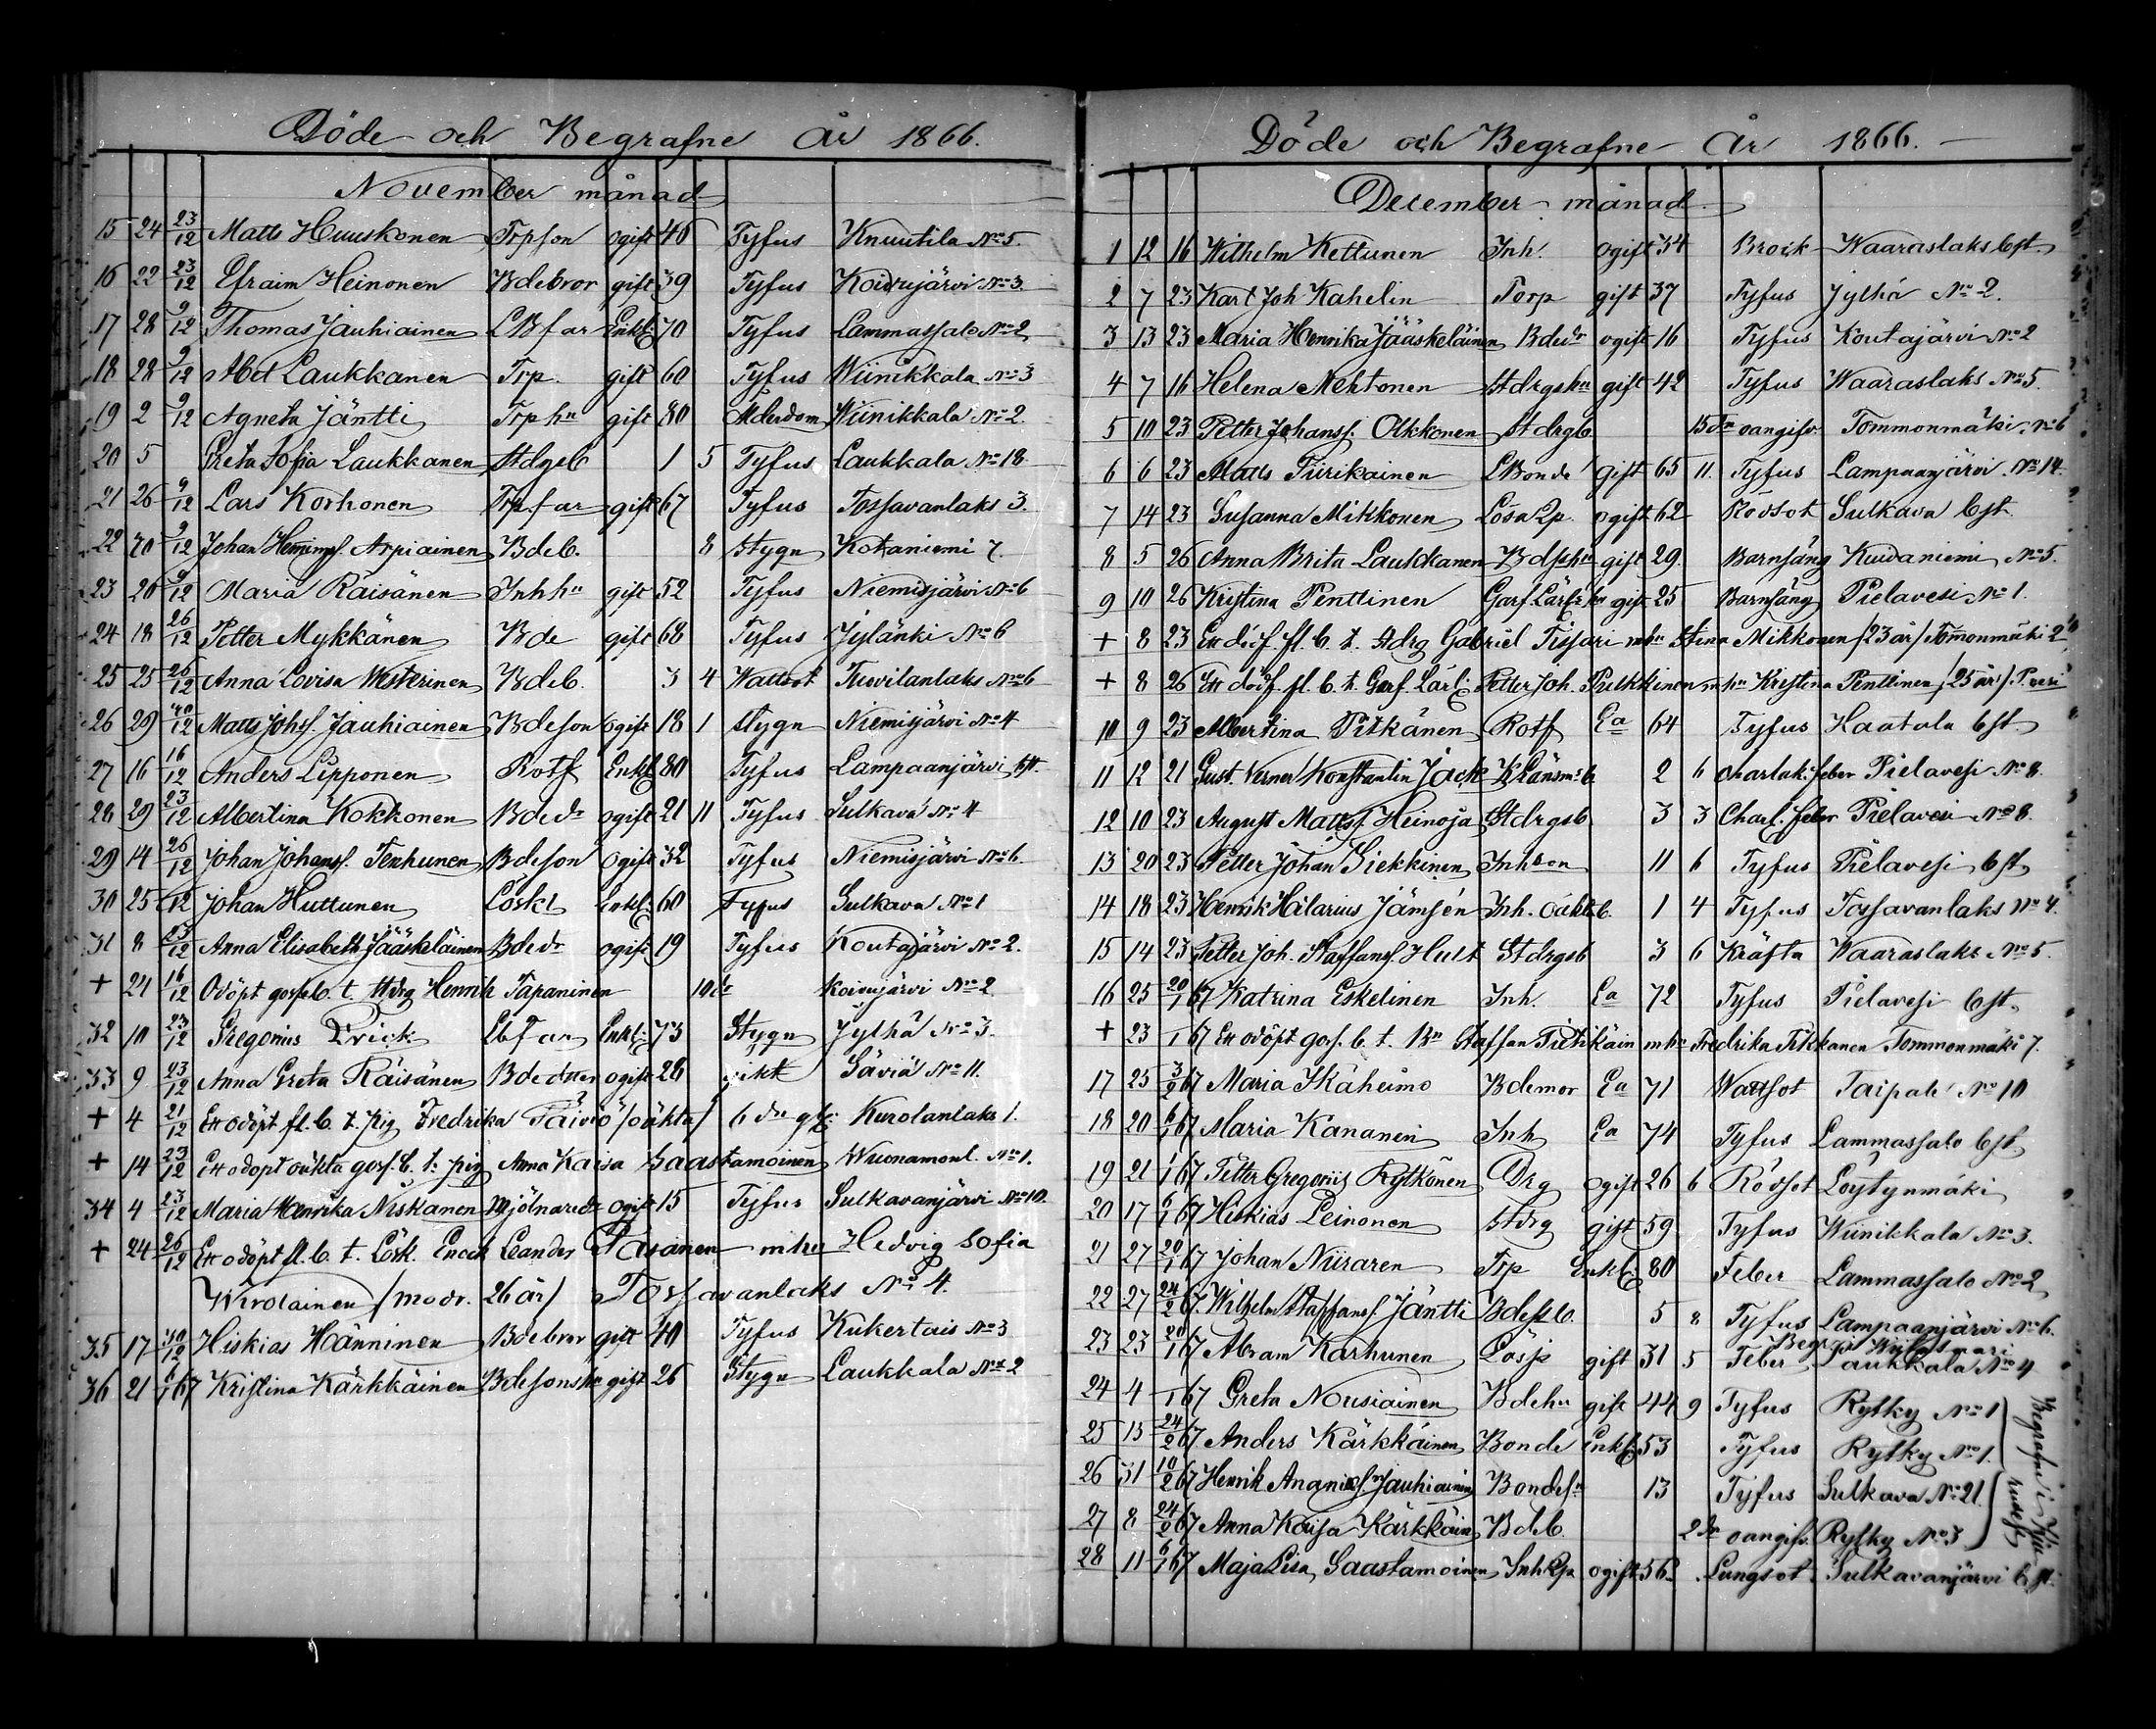 Döde och Begrafne år 1866.
November månad
15 24 23/12 Matts Huuskonen Trpson ogift 46 Tyfus Knuutila No 5.
16 22 23/12 Efraim Heinonen Bdebror gift 39 Tyfus Koivujärvi No 3
17 28 9/12 Thomas Jauhiainen LBfar Enkl: 70 Tyfus Lammassalo No 2
18 28 9/12 Abel Laukkanen Trp. gift 60 Tyfus Wiinikkala No 3
19 2 9/12 Agneta Jäntti Trp hu gift 80 Ålderdom Wiinikkala No 2.
20 5 Greta Sofia Laukkanen Stdrgsb 1 5 Tyfus Laukkala No 18
21 26 9/12 Lars Korhonen Trpfar gift 67 Tyfus Tossavanlaks 3.
22 20 9/12 Johan Hemmings. Arpiainen Bdeb. 8 Stygn Kotaniemi 7.
23 20 9/12 Maria Räisänen Inhhu gift 52 Tyfus Niemisjärvi No 6
24 18 26/12 Petter Mykkänen Bde gift 68 Tyfus Jylänki No 6
25 25 26/12 Anna Lovisa Westerinen Bdeb. 3 4 Wattsot Tuovilanlaks No 6
26 29 /12 Matts Johs. Jauhiainen Bdeson ogift 18 1 Stygn Niemisjärvi No 4
27 16 16/12 Anders Lipponen Rotf Enkl 80 Tyfus Lampaanjärvi bst.
28 29 23/12 Albertina Kokkonen Bdedr ogift 21 11 Tyfus Sulkava No 4
29 14 26/12 Johan Johans. Tenhunen Bdeson ogift 32 Tyfus Niemisjärvi No 6.
30 25 /12 Johan Huttunen Löskl Enkl: 60 Tyfus Sulkava No 1
31 8 23/12 Anna Elisabeth Jääskeläinen Bdedr ogift 19 Tyfus Koutajärvi No 2.
+ 21 16/12 Odöpt gosseb. t. Stdrg Henrik Tapaninen 10dr Koivujärvi No 2
32 10 23/12 Gregorius Erick Lbfar Enkl: 73 Stygn Jylhä No 3.
33 9 23/12 Anna Greta Räisänen Bdedotter ogift 28 Säviä No 11.
+ 4 21/12 Ett odöpt fl. b. t. pig Fredrika Päiviö /oäkta/ 6 dr gl: Kurolanlaks 1.
+ 14 23/12 Ett odöpt oäkta goss. b. t. pig Anna Kaisa Saastamoinen No 1.
34 4 23/12 Maria Henrika Niskanen Mjölnaredr ogift 15 Tyfus Sulkavanjärvi No 10.
+ 24 26/12 Ett odöpt fl. b. t. Lösk. Enock Leander Pasanen mhu Hedvig Sofia
Wirolainen /modr. 26 år/ Tossavanlaks No 4.
35 17 30/12 Hiskias Hänninen Bdebror gift 40 Tyfus Kukertais No 3
36 21 6/1 67 Kristina Kärkkäinen Bdesonshu gift 26 Stygn Laukkala No 2
Döde och Begrafne År 1866.
December månad
1 12 16 Wilhelm Kettunen Inh. ogift 34 Brock Waaraslaks bst.
2 7 23 Karl Joh Kahelin Torp gift 37 Tyfus Jylhä No 2.
3 13 23 Maria Henrika Jääskeläinen Bdedr ogift 16 Tyfus Koutajärvi No 2
4 7 16 Helena Mehtonen Stdrgshu gift 42 Tyfus Waaraslaks No 5.
5 10 23 Petter Johans. Olkkonen Stdrgb 15dr oangifv. Tommonmäki No 6
6 6 23 Matts Tiirikainen LBonde gift 65 11. Tyfus Lampaanjärvi No 14.
7 14 23 Susanna Mikkonen Lösa Qp. ogift 62 Rödsot Sulkava bst.
8 5 26 Anna Brita Laukkanen Bdshu gift 29. Barnsäng Kuivaniemi No 5.
9 10 26 Kristina Penttinen Garf.Lärl: hu gift 25 Barnsäng Pielavesi No 1.
+ 8 23 Ett döf. fl. b. t. Stdrg Gabriel Tissari mhu Stina Mikkonen /23 år/ Tomonmäki 2
+ 8 26 Ett döf. fl. b. t. Garf. Lärl: Petter Joh. Pulkkinen mhu Kristina Penttinen /25 år/ P.vesi
10 9 23 Albertina Pitkänen Rotf Ea 64 Tyfus Haatala bst.
11 12 21 Gust. Verner Konstantin Jack KLänsm:b 2 6 Charlak.feber Pielavesi No 8.
12 10 23 August Matts. Heinoja Stdrgsb 3 3 Charl. feber Pielavesi No 8.
13 20 23 Petter Johan Siekkinen Inhson 11 6 Tyfus Pielavesi bst
14 18 23 Henrik Hilarius Jämsén Inh. oäktb. 1 4 Tyfus Tossavanlaks No 4.
15 14 23 Petter Joh. Staffans. Hult Stdrgsb 3 6 Kräfta Waaraslaks No 5.
16 25 20/1 67 Katrina Eskelinen Inh. Ea 72 Tyfus Pielavesi bst.
+ 23 /1 67 Ett odöpt gos. b. t. Bn Staffan Tiitikäin mhu Fredrika Tikkanen Tommonmäki 7.
17 25 3/2 67 Maria Ikäheimo Bdemor Ea 71 Wattsot Taipale No 10
18 20 6/1 67 Maria Kananen Inh Ea 74 Tyfus Lammassalo bst.
19 21 1/1 67 Petter Gregorius Rytkönen Drg ogift 26 6 Rödsot Löytynmäki
20 17 6/1 67 Hiskias Leinonen Stdrg gift 59 Tyfus Wiinikkala No 3.
21 27 20/1 67 Johan Niiraren Trp Enkl 80 Feber Lammassalo No 2
22 27 24/2 67 Wilhelm Staffans. Jäntti Bdesb. 5 8 Tyfus Lampaanjärvi No 6.
23 23 20/1 67 Abram Karhunen Lösp gift 31 5 Feber Laukkala No 4
24 4 /1 67 Greta Nousiainen Bdehu gift 44 9 Tyfus Rytky No 1
25 13 24/2 67 Anders Kärkkäinen Bonde Enkl: 53 Tyfus Rytky No 1.
26 31 10/2 67 Henrik Ananias. Jauhiainen Bondesn 13 Tyfus Sulkava No 21
27 8 24/2 67 Anna Kaisa Kärkkäin Bdeb. 2dr oangifv. Rytky No 3
28 11 6/1 67 Maja Lisa Saastamoinen Inh Qp ogift 56 Lungsot Sulkavanjärvi bst.
Begrafne i